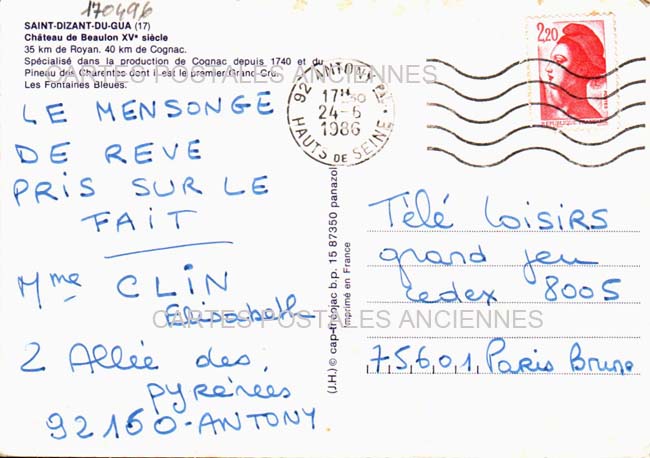 170496
SAINT-DIZANT-DU-GUA (17)
Château de Beaulon XVe siècle
35 km de Royan. 40 km de Cognac.
Spécialisé dans la production de Cognac depuis 1740 et du
Pineau des Charentes dont il est le premier Grand Cru.
Les Fontaines Bleues.
CARTES POSTALES ANCIENNES
LE MENSONGE
DE REVE
PRIS SUR LE
FAIT
Mme CLIN
Elisabeth
2 Allée des
pyrénées
92160-ANTONY
92 ANTONY PL
17H30
24-6
1986
HAUTS DE SEINE
2,20
(J.H.) © cap-théojac b.p. 15 87350 panazol
Imprimé en France
Télé Loisirs
grand jeu
cedex 8005
75601 Paris Brune
CARTES POSTALES ANCIENNES